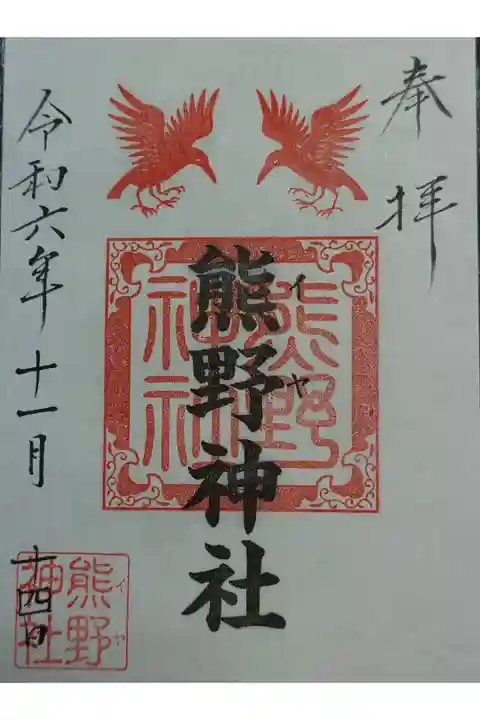 奉拝
熊野神社
イヤ
熊野
神社
令和六年十一月廿四日
熊野
イヤ
神社